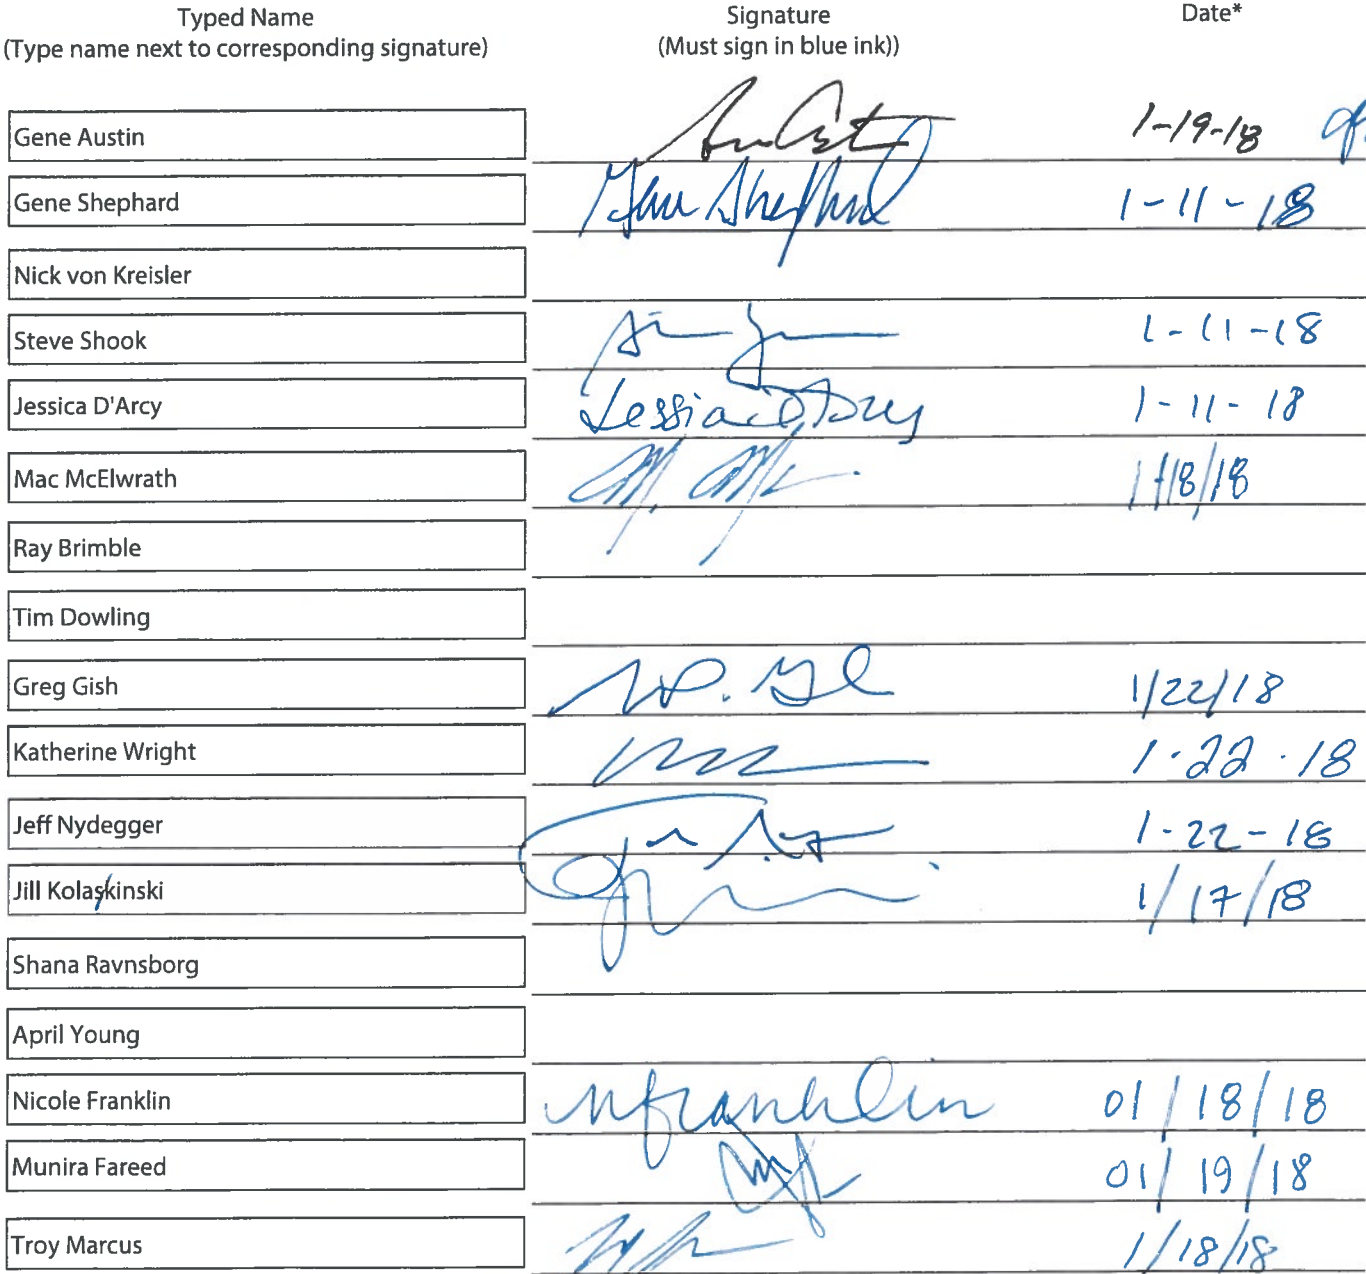 Typed Name Signature Date*
(Type name next to corresponding signature) (Must sign in blue ink))
Gene Austin 1-19-18
Gene Shephard Gene Shephard 1-11-18
Nick von Kreisler
Steve Shook 1-11-18
Jessica D'Arcy Jessica D'Arcy 1-11-18
Mac McElwrath 1/18/18
Ray Brimble
Tim Dowling
Greg Gish 1/22/18
Katherine Wright 1-22-18
Jeff Nydegger 1-22-18
Jill Kolaskinski 1/17/18
Shana Ravnsborg
April Young
Nicole Franklin nfranklin 01/18/18
Munira Fareed 01/19/18
Troy Marcus 1/18/18